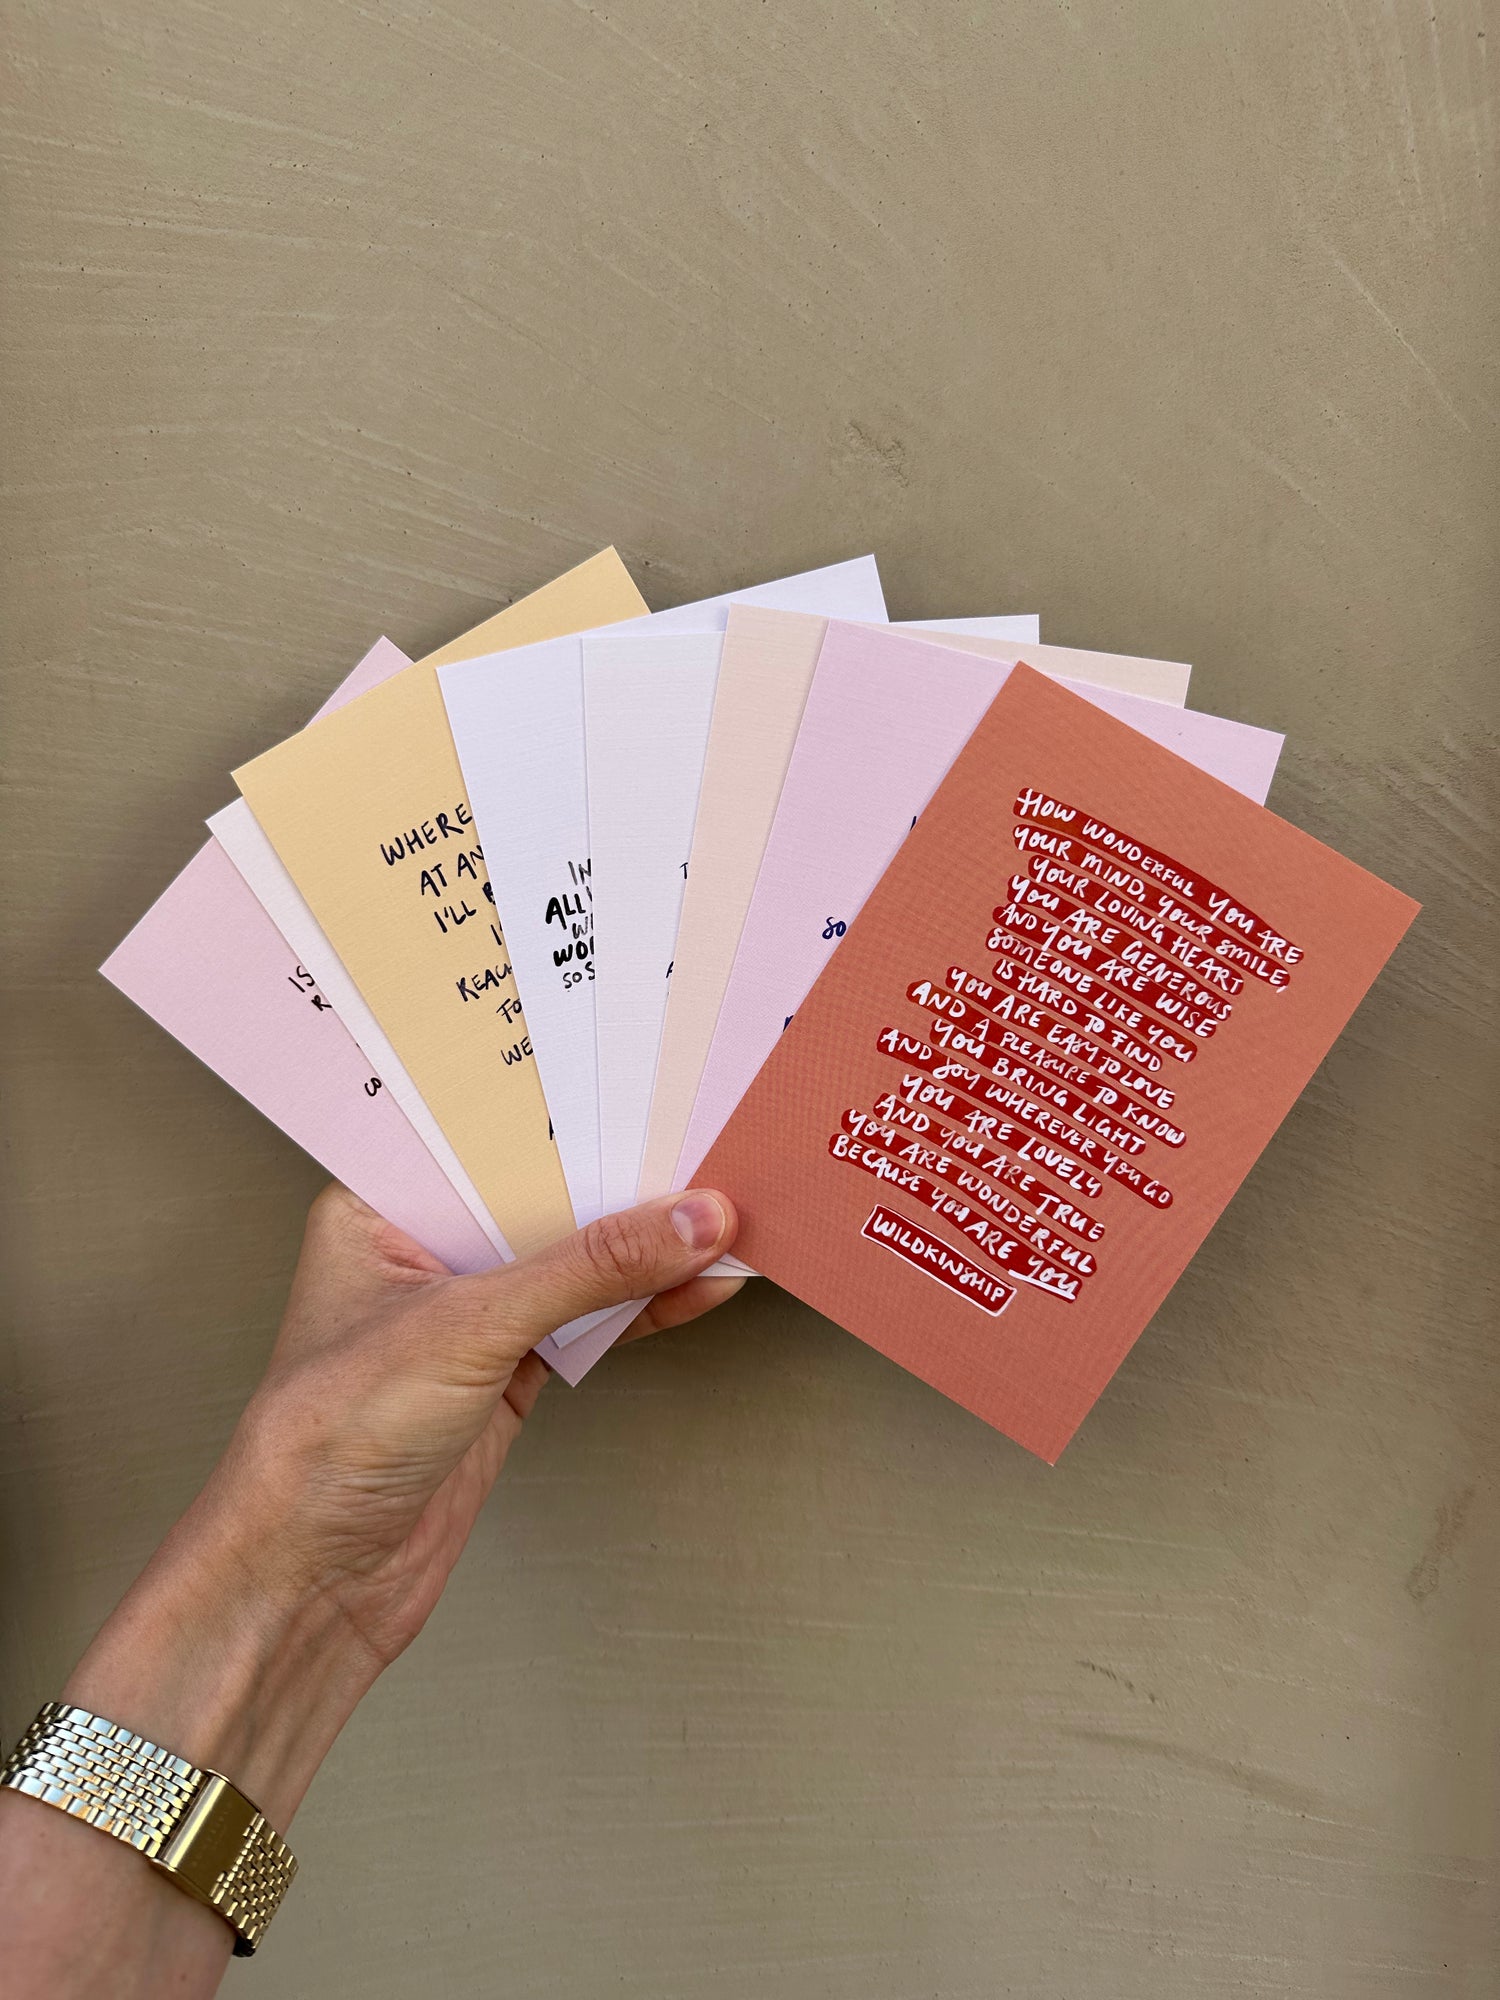 IS
R
CO
WHERE
AT AN
I'LL B
I
REACH
FO
WE
IN
ALL
WI
WOR
SO S
T
SO
HOW WONDERFUL YOU ARE
YOUR MIND, YOUR SMILE,
YOUR LOVING HEART
YOU ARE GENEROUS
AND YOU ARE WISE
SOMEONE LIKE YOU
IS HARD TO FIND
YOU ARE EASY TO LOVE
AND A PLEASURE TO KNOW
YOU BRING LIGHT
AND JOY WHEREVER YOU GO
YOU ARE LOVELY
AND YOU ARE TRUE
YOU ARE WONDERFUL
BECAUSE YOU ARE YOU
WILDKINSHIP